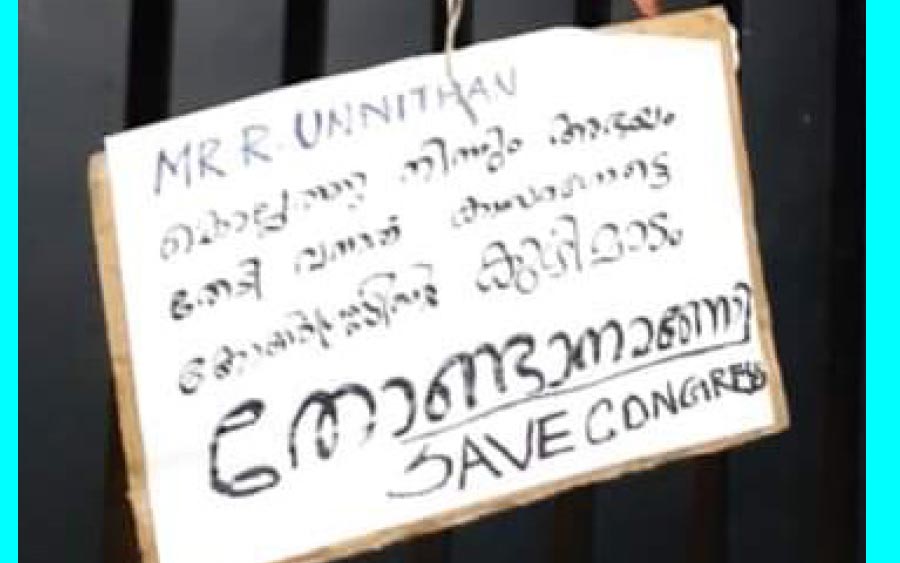 MR R. UNNITHAN
കൊല്ലത്തു നിന്നും അഭയം
തേടി വന്നത് കാസർഗോട്ടെ
കോൺഗ്രസ്സിന്റെ കുഴിമാടം
തോണ്ടാനാണോ?
SAVE CONGRESS